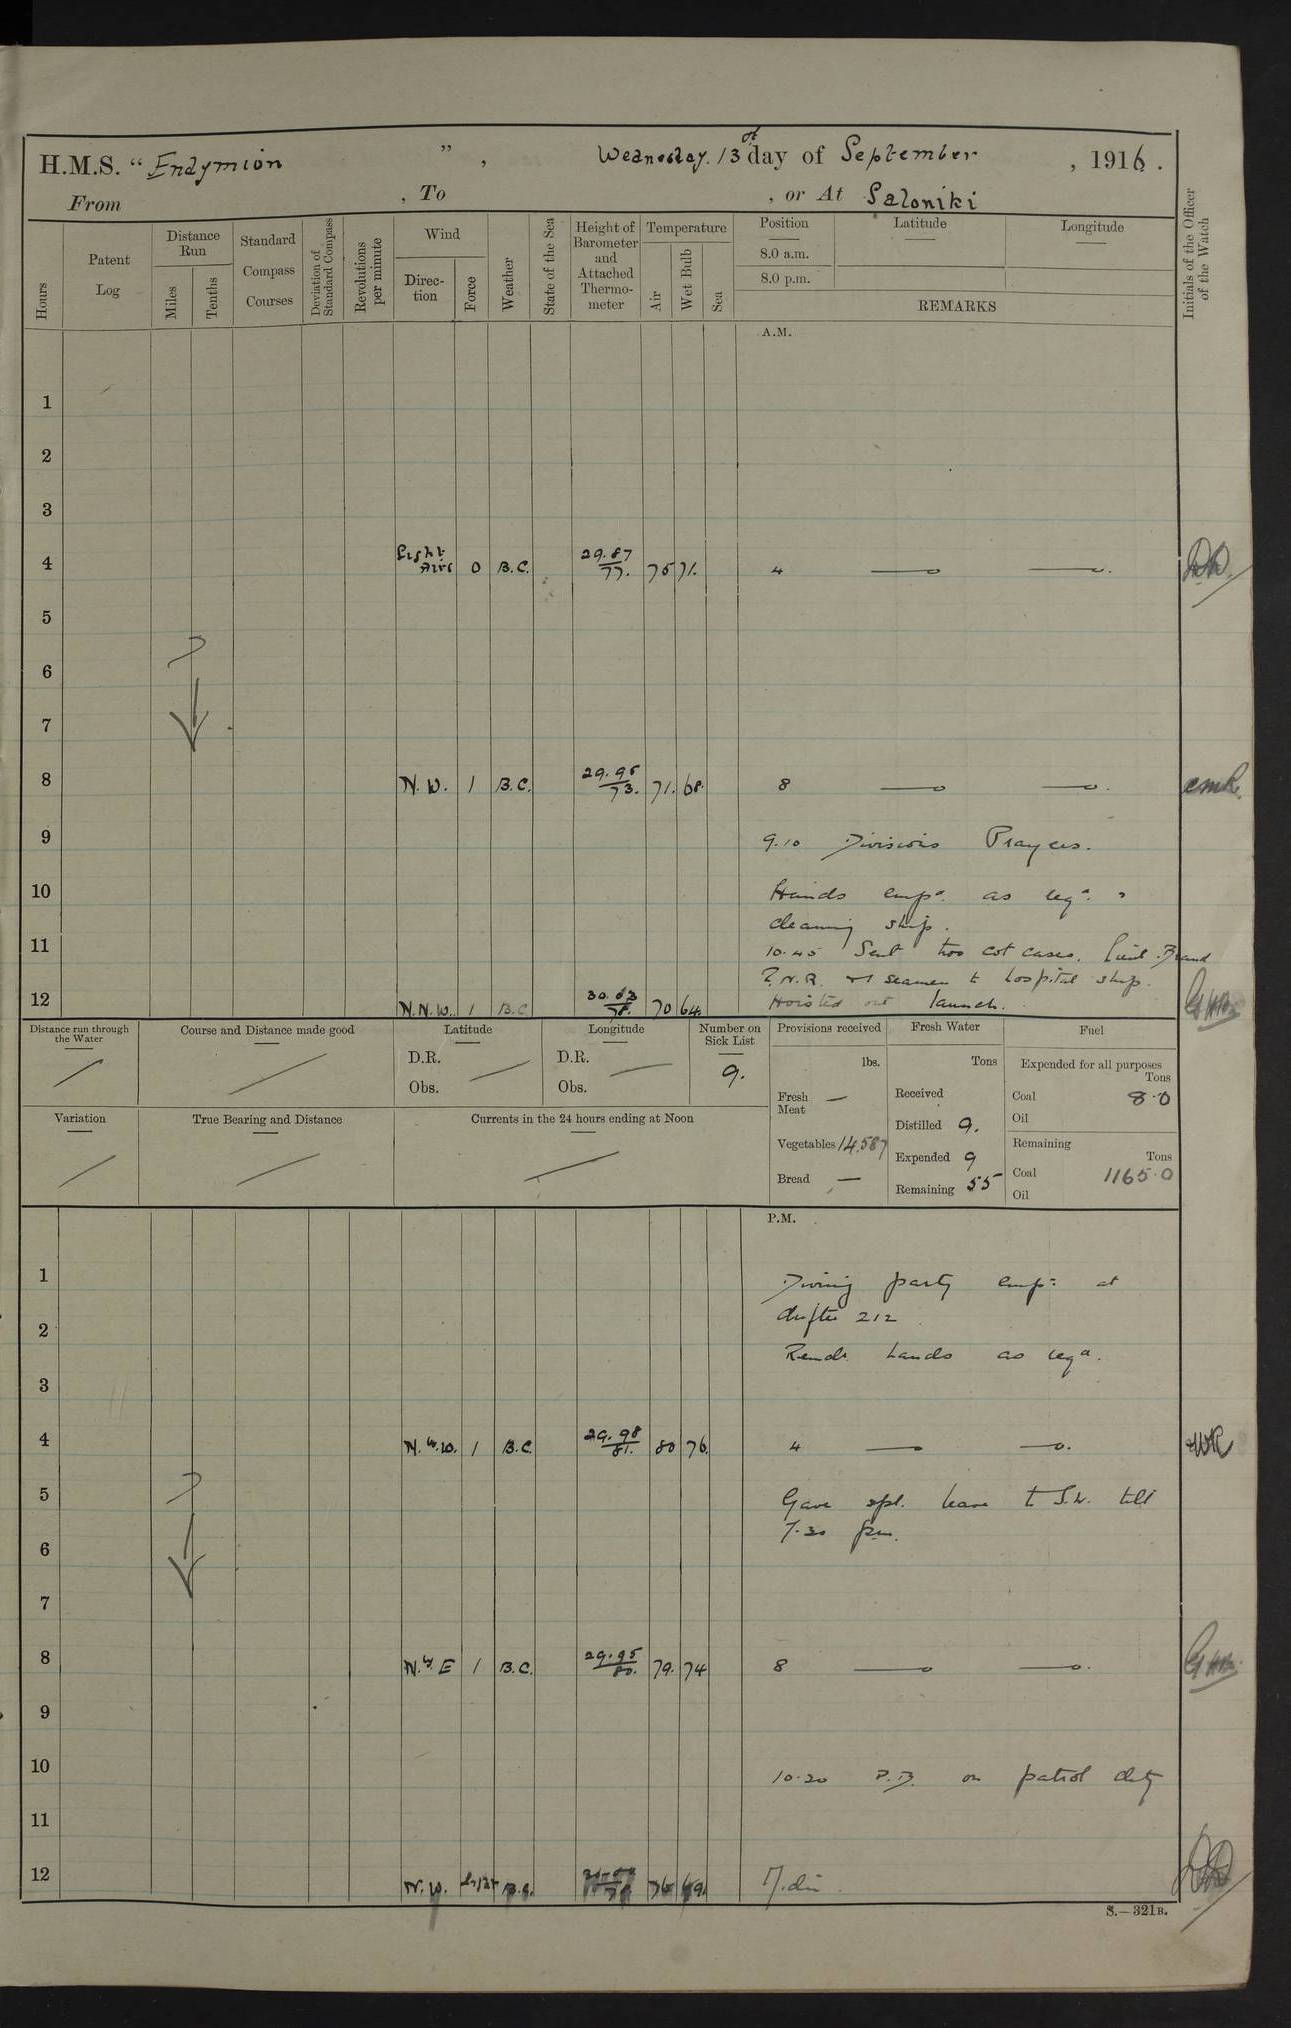 H.M.S. “Endymion ”, Wednesday 13th day of September, 1916.
From , To , or At Saloniki
Hours Patent Log Distance Run Miles Tenths Standard Compass Courses Deviation of Standard Compass Revolutions per minute Wind Direction Force Weather State of the Sea Height of Barometer and Attached Thermometer Temperature Air Wet Bulb Sea Position 8.0 a.m. 8.0 p.m. Latitude Longitude
REMARKS
Initials of the Officer of the Watch
A.M.
1
2
3
4 Light Airs 0 B.C. 29.87 77. 75 71. 4
5
6
7
8 N.W. 1 B.C. 29.95 73. 71. 68. 8
9 9.10 Divisions Prayers.
10 Hands empd. as reqd.
cleaning ship.
11 10.45 Sent two cot cases. Lieut. Brand
R.N.R. seamen to hospital ship.
12 N.N.W. 1 B.C. 30.03 78. 70 64. Hoisted out launch.
Distance run through the Water Course and Distance made good Latitude Longitude Number on Sick List Provisions received Fresh Water Fuel
D.R. D.R. 9. lbs. Tons Expended for all purposes Tons
Obs. Obs. Fresh Meat — Received Coal 8.0
Oil
Variation True Bearing and Distance Currents in the 24 hours ending at Noon Distilled 9.
Vegetables 14,587 Expended 9 Remaining Tons
Bread — Remaining 55 Coal 1165.0
Oil
P.M.
1 Diving party empd. at
2 drifter 212
Remdr. hands as reqd.
3
4 N.W. 1 B.C. 29.98 81. 80 76. 4
5 Gave spl. leave to till
6 7.30 pm.
7
8 N. E 1 B.C. 29.95 80. 79. 74 8
9
10 10.20 P.B. on patrol duty
11
12 N.W. Light B.C. 76 69. Mdn.
S.—321B.